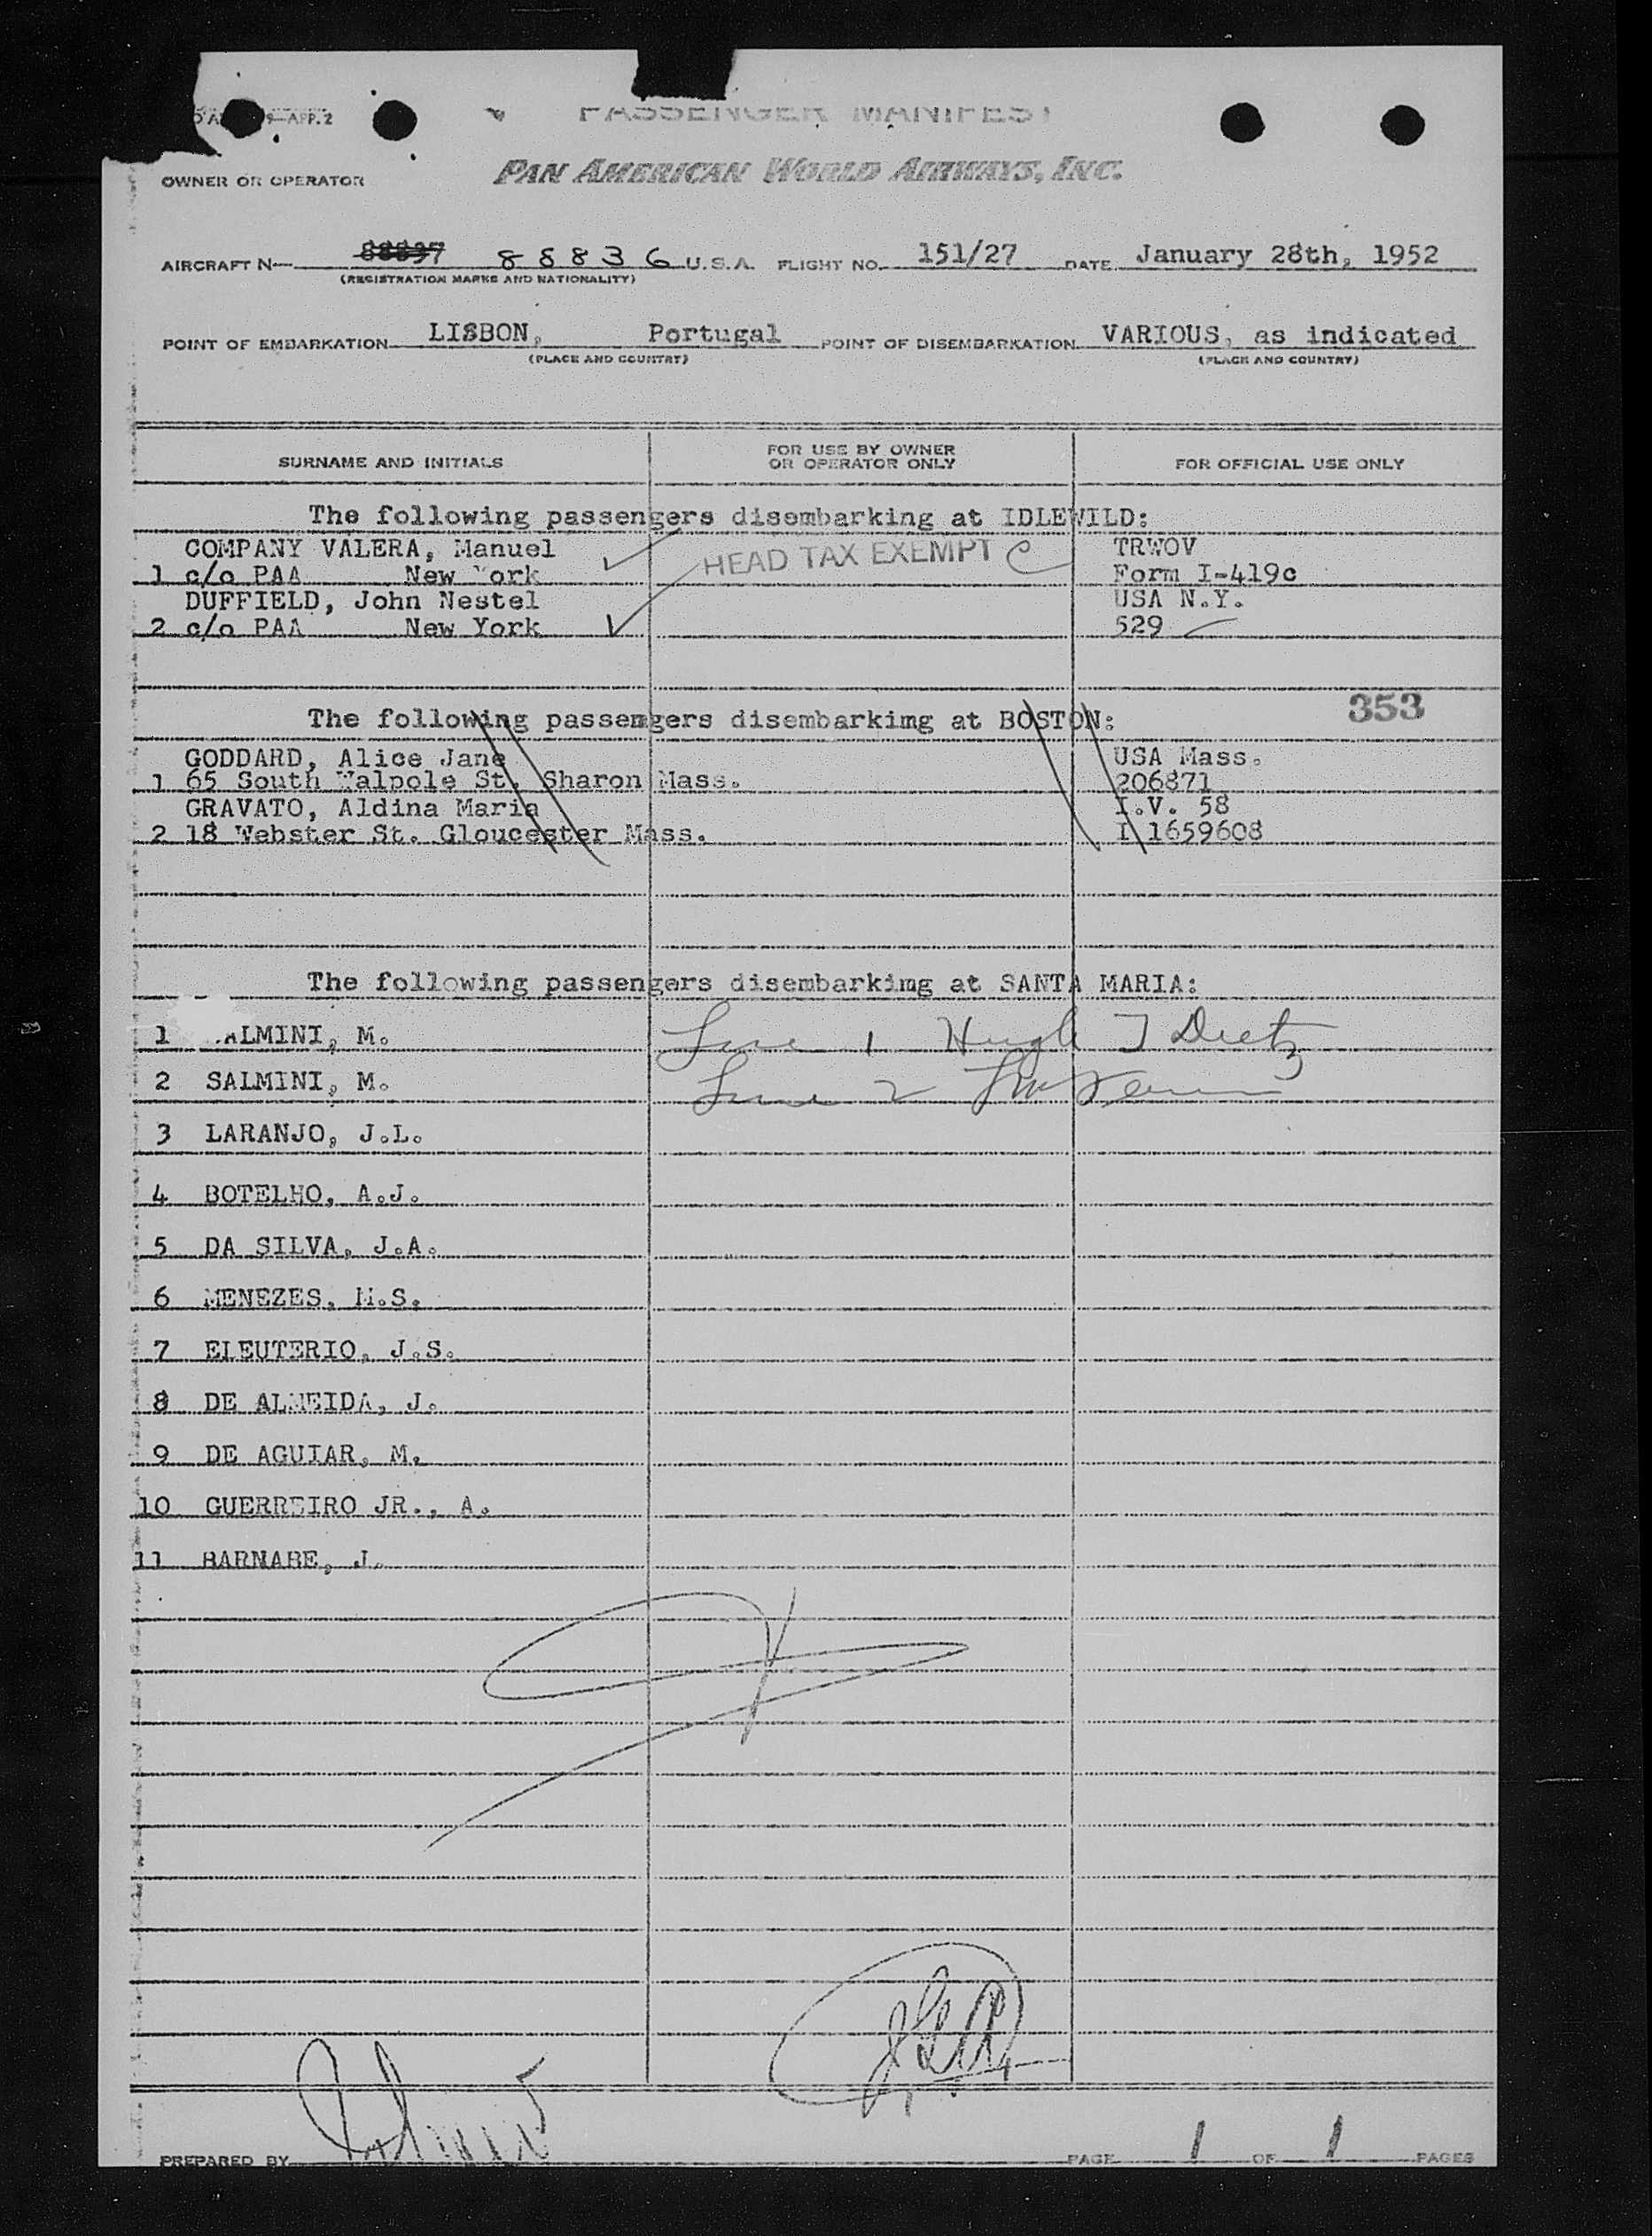 PASSENGER MANIFEST
APP.2
OWNER OR OPERATOR PAN AMERICAN WORLD AIRWAYS, INC.
AIRCRAFT N— 88837 88836 U.S.A. FLIGHT NO. 151/27 DATE January 28th, 1952
(REGISTRATION MARKS AND NATIONALITY)
POINT OF EMBARKATION LISBON, Portugal POINT OF DISEMBARKATION VARIOUS, as indicated
(PLACE AND COUNTRY) (PLACE AND COUNTRY)
SURNAME AND INITIALS FOR USE BY OWNER OR OPERATOR ONLY FOR OFFICIAL USE ONLY
The following passengers disembarking at IDLEWILD:
COMPANY VALERA, Manuel HEAD TAX EXEMPT TRWOV
1 c/o PAA New York Form I-419c
DUFFIELD, John Nestel USA N.Y.
2 c/o PAA New York 529
353
The following passemgers disembarking at BOSTON:
GODDARD, Alice Jane USA Mass.
1 65 South Walpole St. Sharon Mass. 206871
GRAVATO, Aldina Maria I.V. 58
2 18 Webster St. Gloucester Mass. I 1659608
The following passengers disembarking at SANTA MARIA:
1 ALMINI, M. Line 1 Hugh J Dietz
2 SALMINI, M. Line 2
3 LARANJO, J.L.
4 BOTELHO, A.J.
5 DA SILVA, J.A.
6 MENEZES, M.S.
7 ELEUTERIO, J.S.
8 DE ALMEIDA, J.
9 DE AGUIAR, M.
10 GUERREIRO JR., A.
11 BARNABE, J.
PREPARED BY PAGE 1 OF 1 PAGES